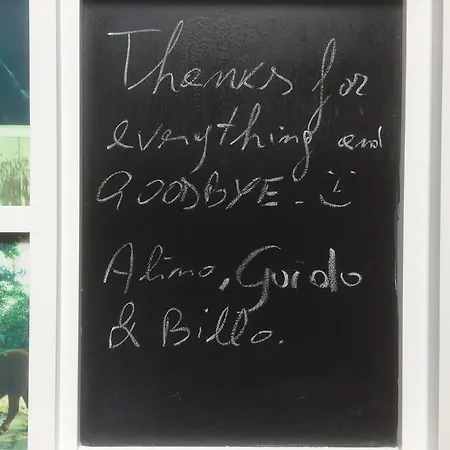 Thanks for
everything and
GOODBYE - :)
Alimo, Guido
& Billo.